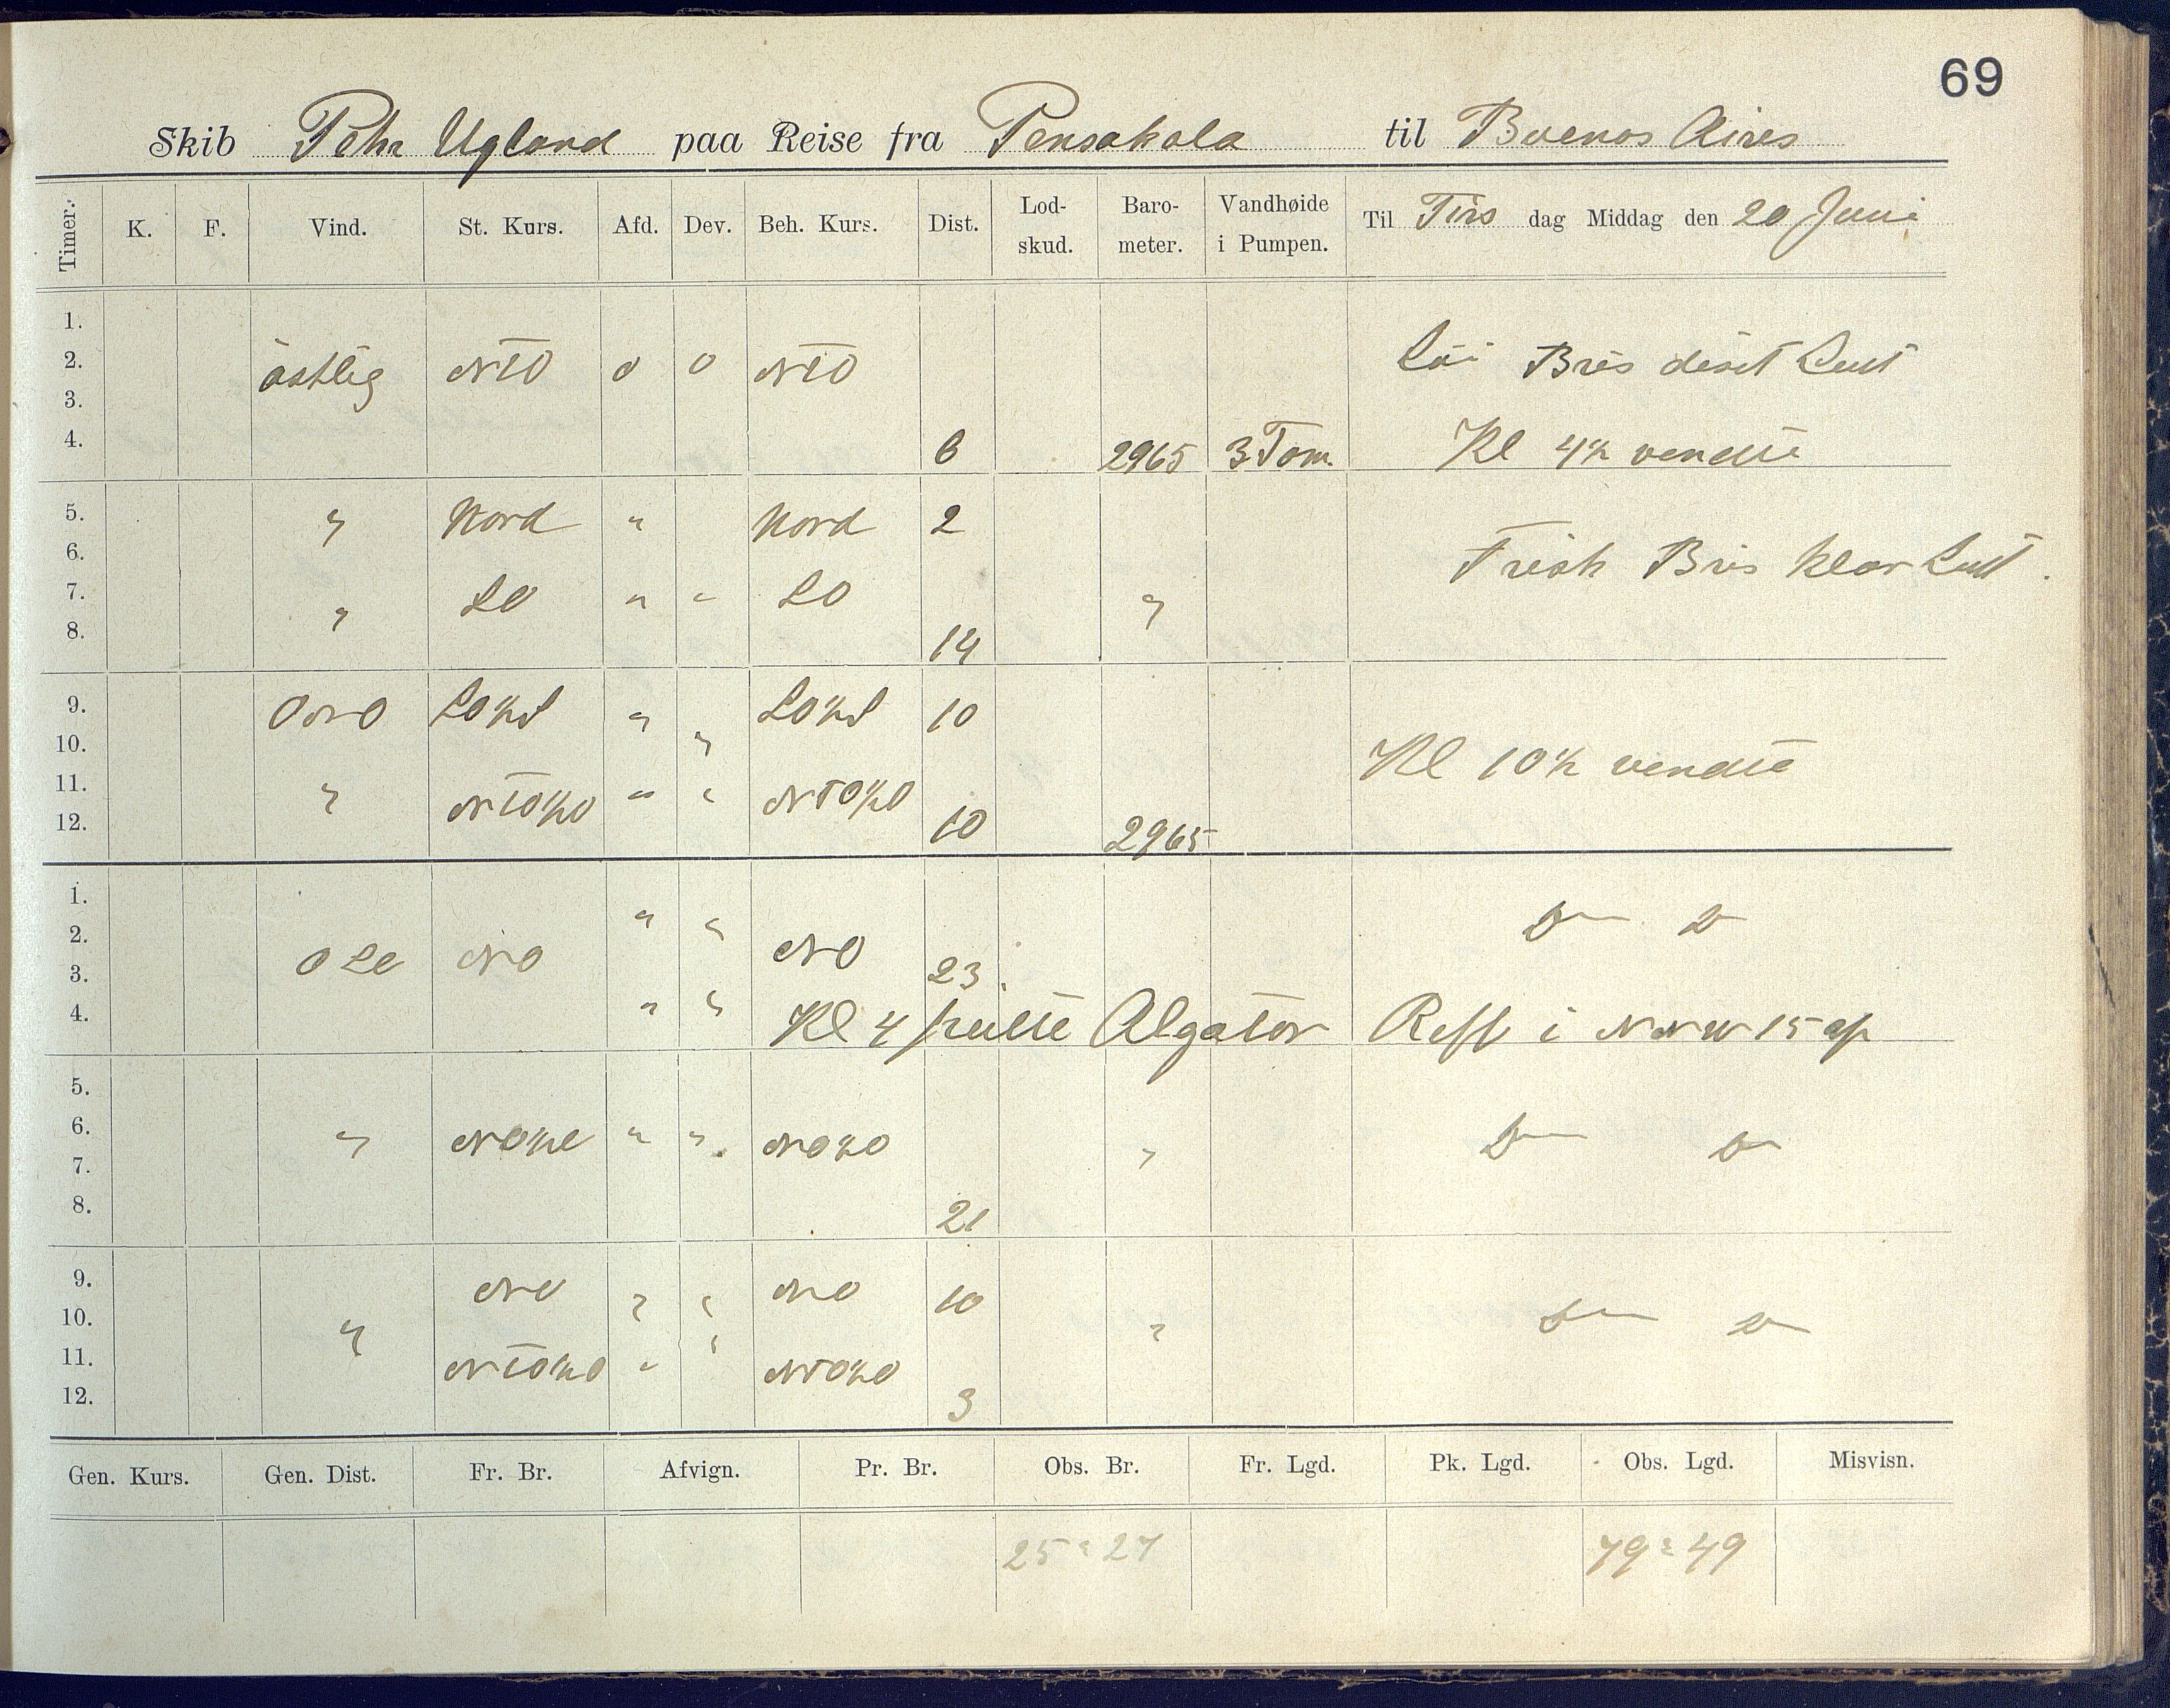 69
Skib Pehr Ugland paa Reise fra Pensakola til Buenos Aires
Timer. K. F. Vind. St. Kurs. Afd. Dev. Beh. Kurs. Dist. Lod-skud. Baro-meter. Vandhøide i Pumpen. Til Tirs dag Middag den 20 Juni
1.
2. östlig NTO 0 0 NTO Löi Bris diset Luft
3.
4. 6 2965 3 Tom. Kl 4½ vendte
5. " Nord " Nord 2
6. Frisk Bris klar Luft.
7. " SO " " SO "
8. 14
9. ONO SO½S " " SO½S 10
10. Kl 10½ vendte
11. " NTO½O " " NTO½O
12. 10 2965
1. " " D D
2. NO
3. NO 23.
4. " " Kl 4 peilte Algator Reff i NNW 15 af
5.
6. " NO½O " " NO½O " D D
7.
8. 21
9. NO " " NO 10
10. " " " D D
11. NTO½O " NTO½O
12. 3
Gen. Kurs. Gen. Dist. Fr. Br. Afvign. Pr. Br. Obs. Br. Fr. Lgd. Pk. Lgd. Obs. Lgd. Misvisn.
25 : 27 79 : 49